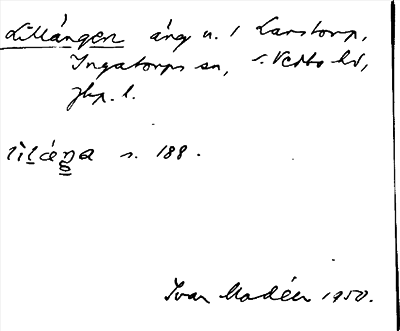 Lillängen äng u. 1 Larstorp,
Ingatorps sn, s. Vedbo hd,
Jkp. l.
lìlæ̀ŋa s. 188.
Ivar Modéer 1950.